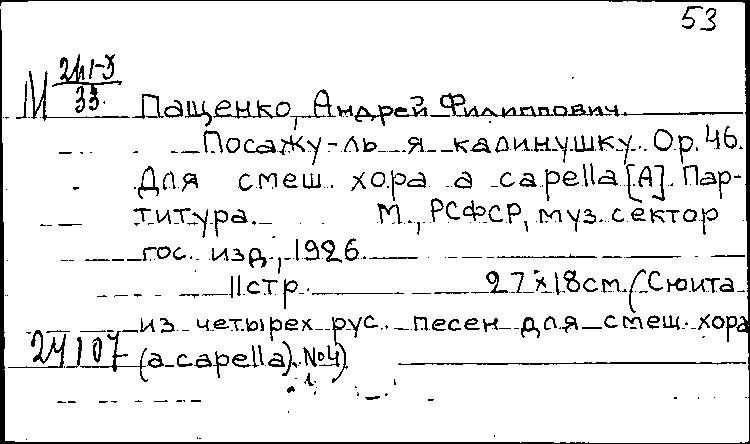 53
М 241-5/33
Пащенко, Андрей Филиппович.
Посажу-ль я калинушку. Op. 46.
Для смеш. хора a capella [А]. Пар-
титура. М., РСФСР, муз. сектор
гос. изд., 1926
11 стр. 27×18 см. (Сюита
из четырех рус. песен для смеш. хора
24107 (a capella). №4)